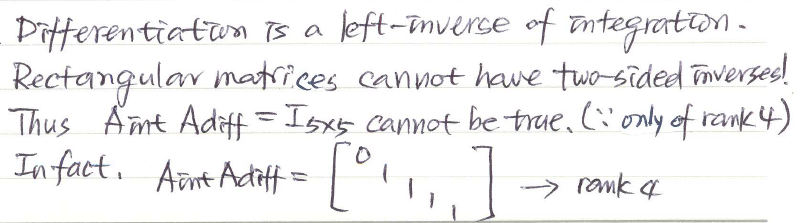 Differentiation is a left-inverse of integration.
Rectangular matrices cannot have two-sided inverses!
Thus Aint Adiff = I5x5 cannot be true. (∵ only of rank 4)
In fact. Aint Adiff = [0 1 1 1 1] → rank 4